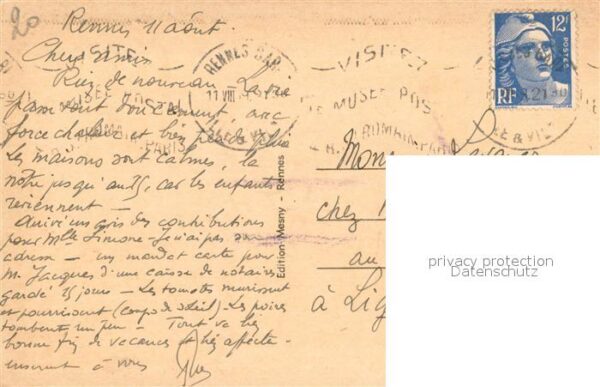 20
Rennes 11 août.
Chers amis
Rien de nouveau. La vie
passe tout doucement, avec
force chaleur et très peu de pluie
les maisons sont calmes, la
notre jusqu'au 25, car les enfants
reviennent —
Arrivé un avis des contributions
pour Mlle Simone - Je n'ai pas son
adresse — un mandat carte pour
M. Jacques d'une caisse de notaires
gardé 15 jours — Les tomates murissent
et pourrissent (coups de soleil) Les poires
tombent un peu — Tout va bien
bonne fin de vacances et bien affectu-
eusement à vous
RENNES GARE
11 VIII
VISITEZ
MUSEE POS
ROMAIN PARIS
ILLE & VIL
12F
POSTES
RF
Edition Mesny - Rennes
Mon
chez
au
à Lig
privacy protection
Datenschutz